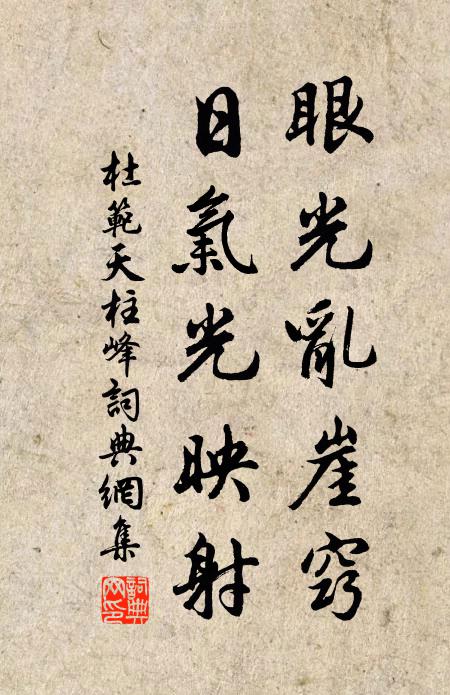 眼光亂崖窍
日氣光映射
杜範天柱峰詞典網集
詞典網印